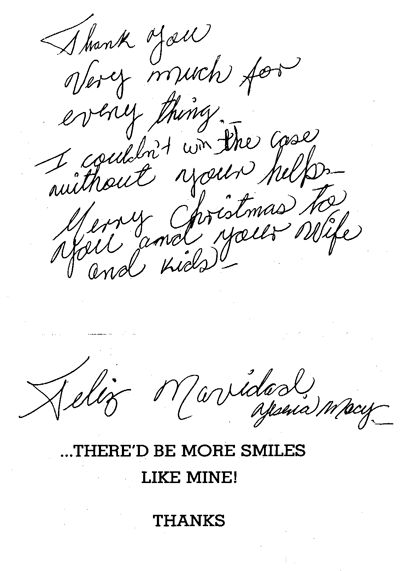 Thank you
Very much for
every thing.
I couldn't win the case
without your help.
Merry Christmas to
you and your Wife
and kids
Feliz Navidad
Macy
...THERE'D BE MORE SMILES
LIKE MINE!
THANKS